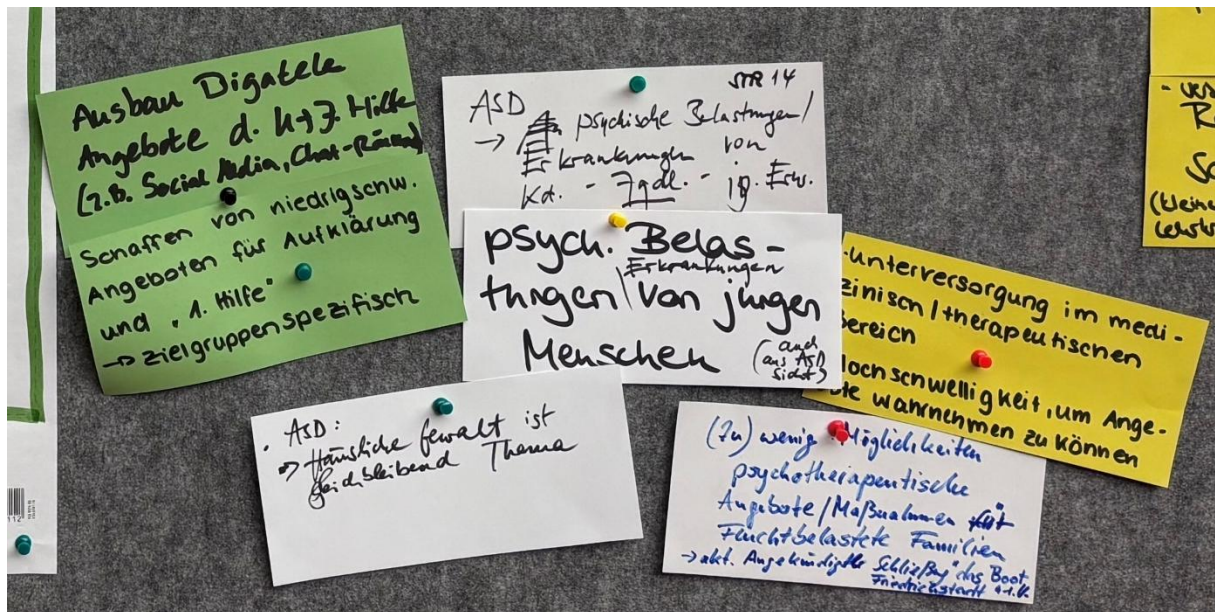 Ausbau Digatele
Angebote d. K+J. Hilfe
(z.B. Social Media, Chat-Räume)
Schaffen von niedrigschw.
Angeboten für Aufklärung
und "1. Hilfe"
→ zielgruppenspezifisch
STR 14
ASD
→ psychische Belastungen/
Erkrankungen von
Kd. - Jgdl. - jg. Erw.
psych. Belas-
Erkrankungen
tungen / von jungen
Menschen
(auch
aus ASD
Sicht)
-unterversorgung im medi-
zinisch/therapeutischen
Bereich
Hochschwelligkeit, um Ange-
bote wahrnehmen zu können
ASD:
→ Häusliche Gewalt ist
gleichbleibend Thema
(Zu) wenig Möglichkeiten
psychotherapeutische
Angebote/Maßnahmen für
Fluchtbelastete Familien
→ akt. Angekündigte Schließung "das Boot
Friedrichstadt
(kleine
112